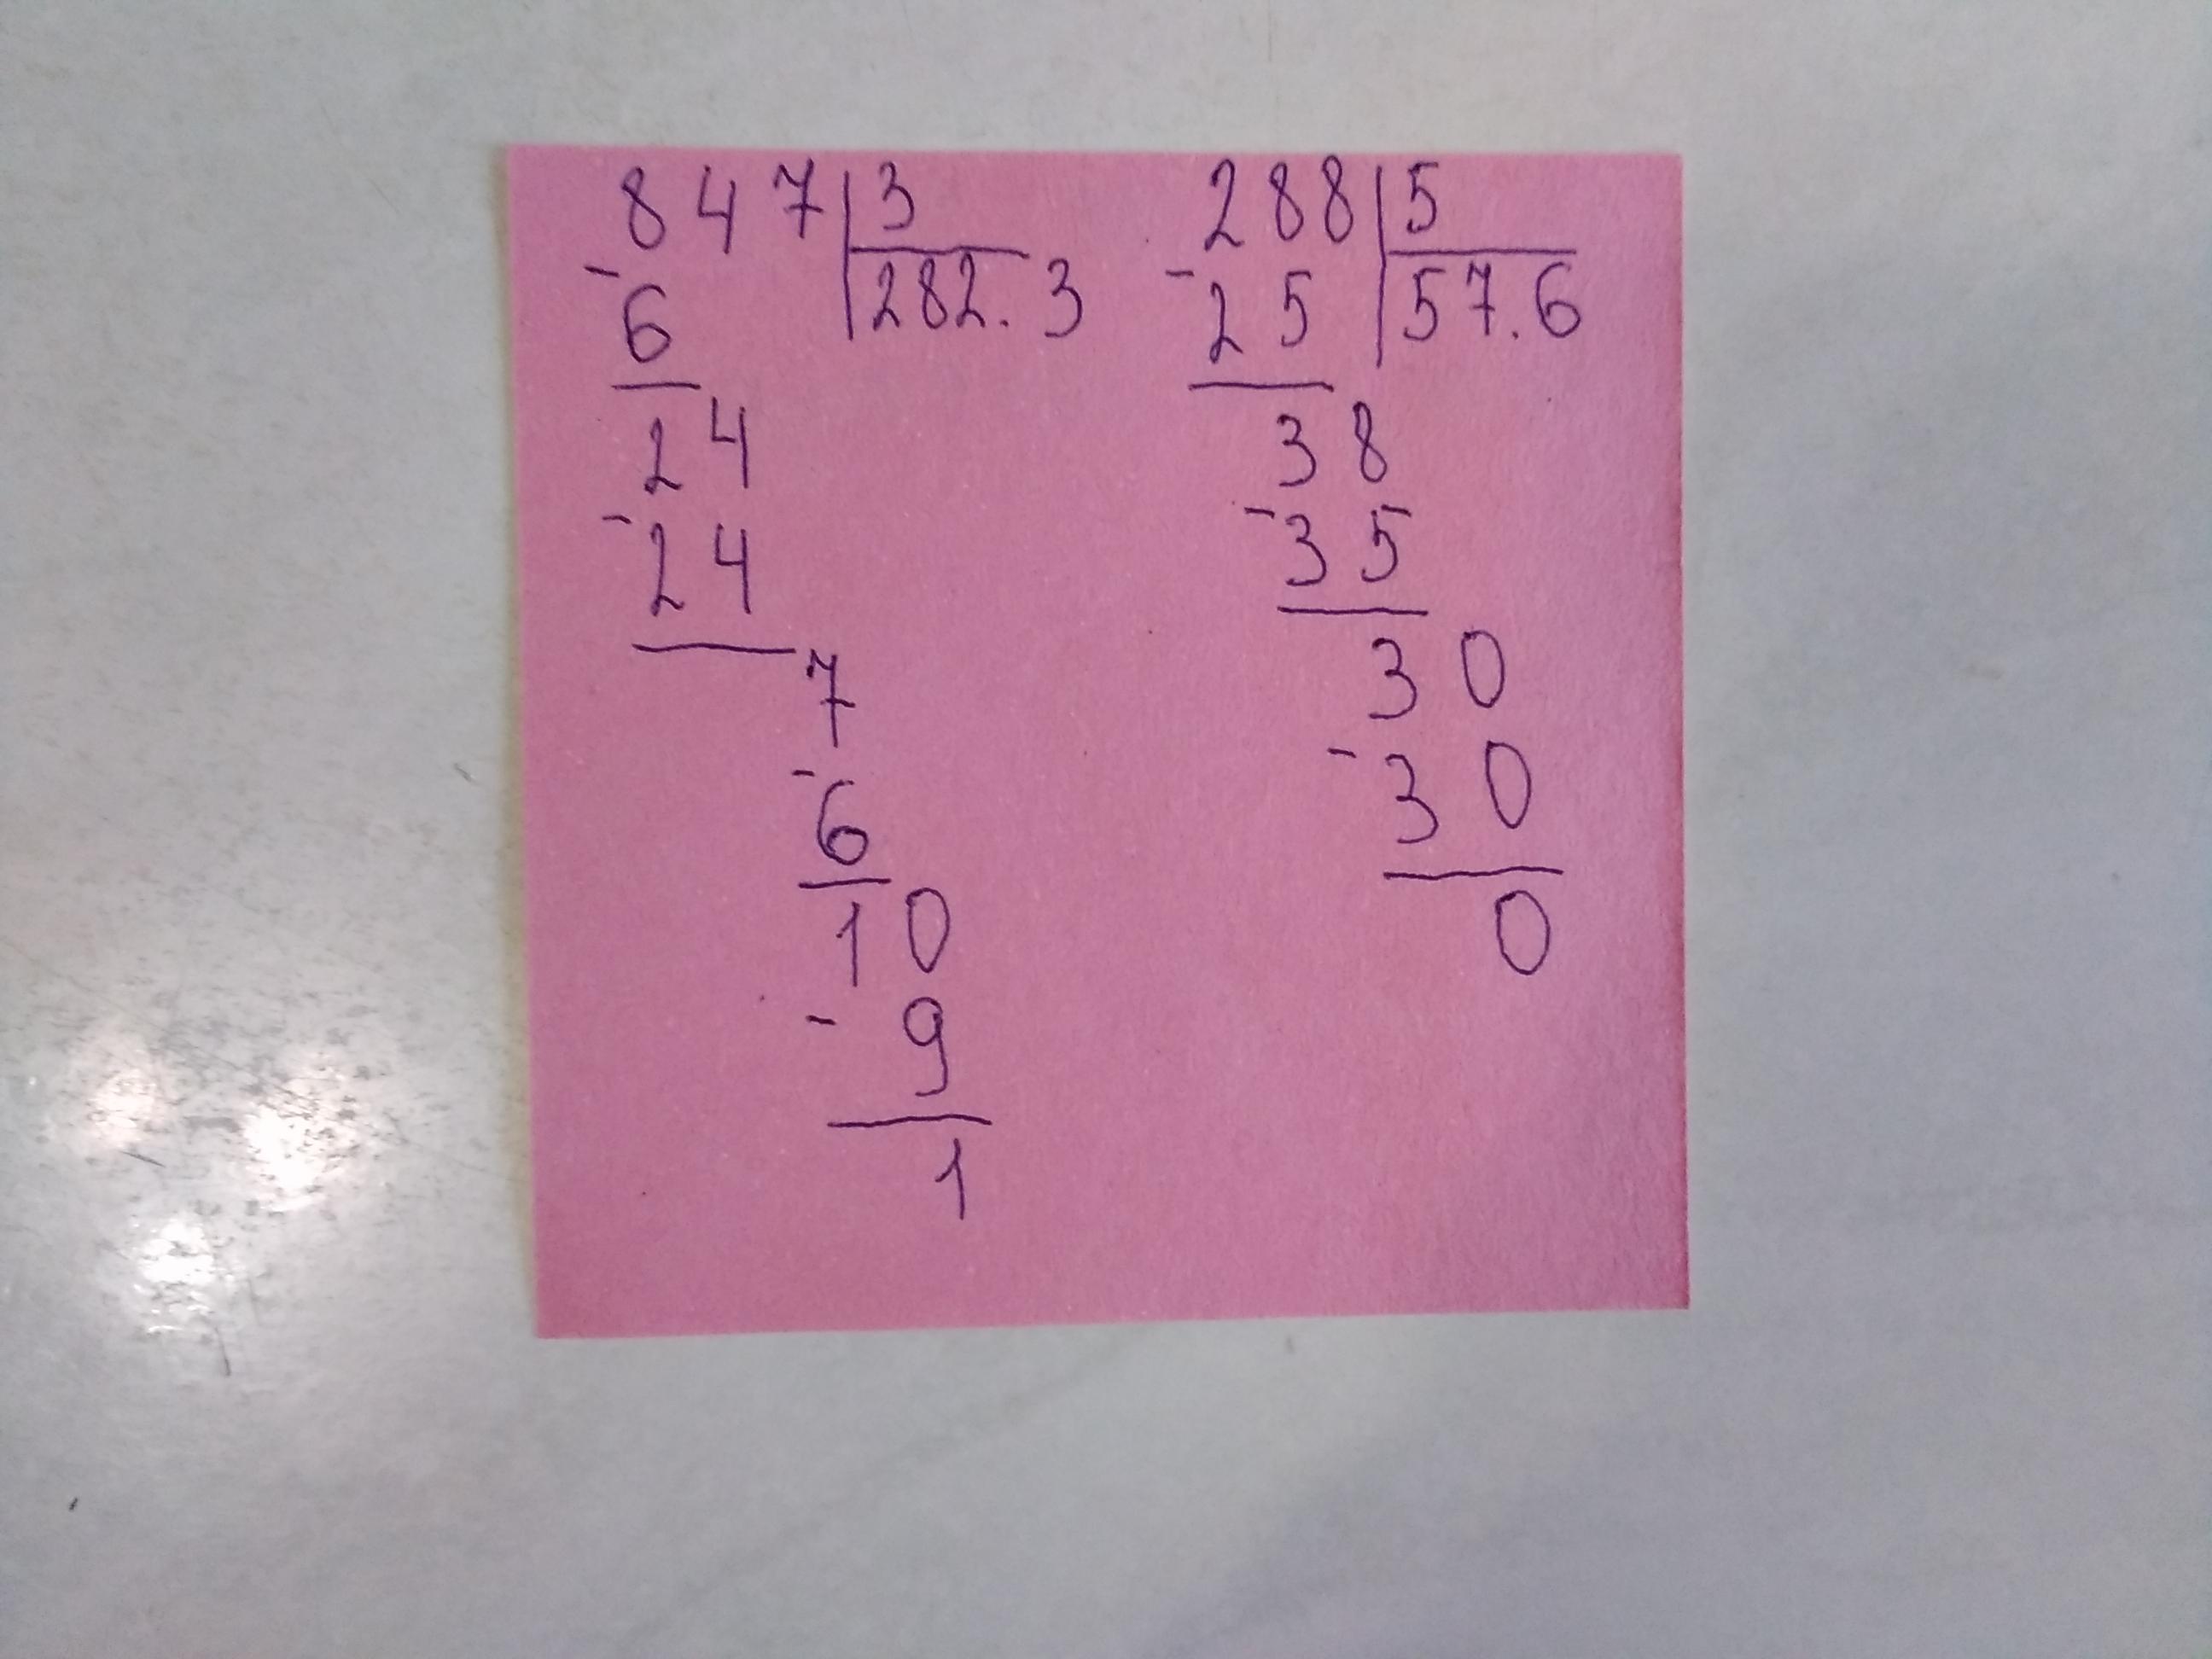 847 | 3
- 6 | 282.3
24
- 24
7
- 6
10
- 9
1
288 | 5
- 25 | 57.6
38
- 35
30
- 30
0